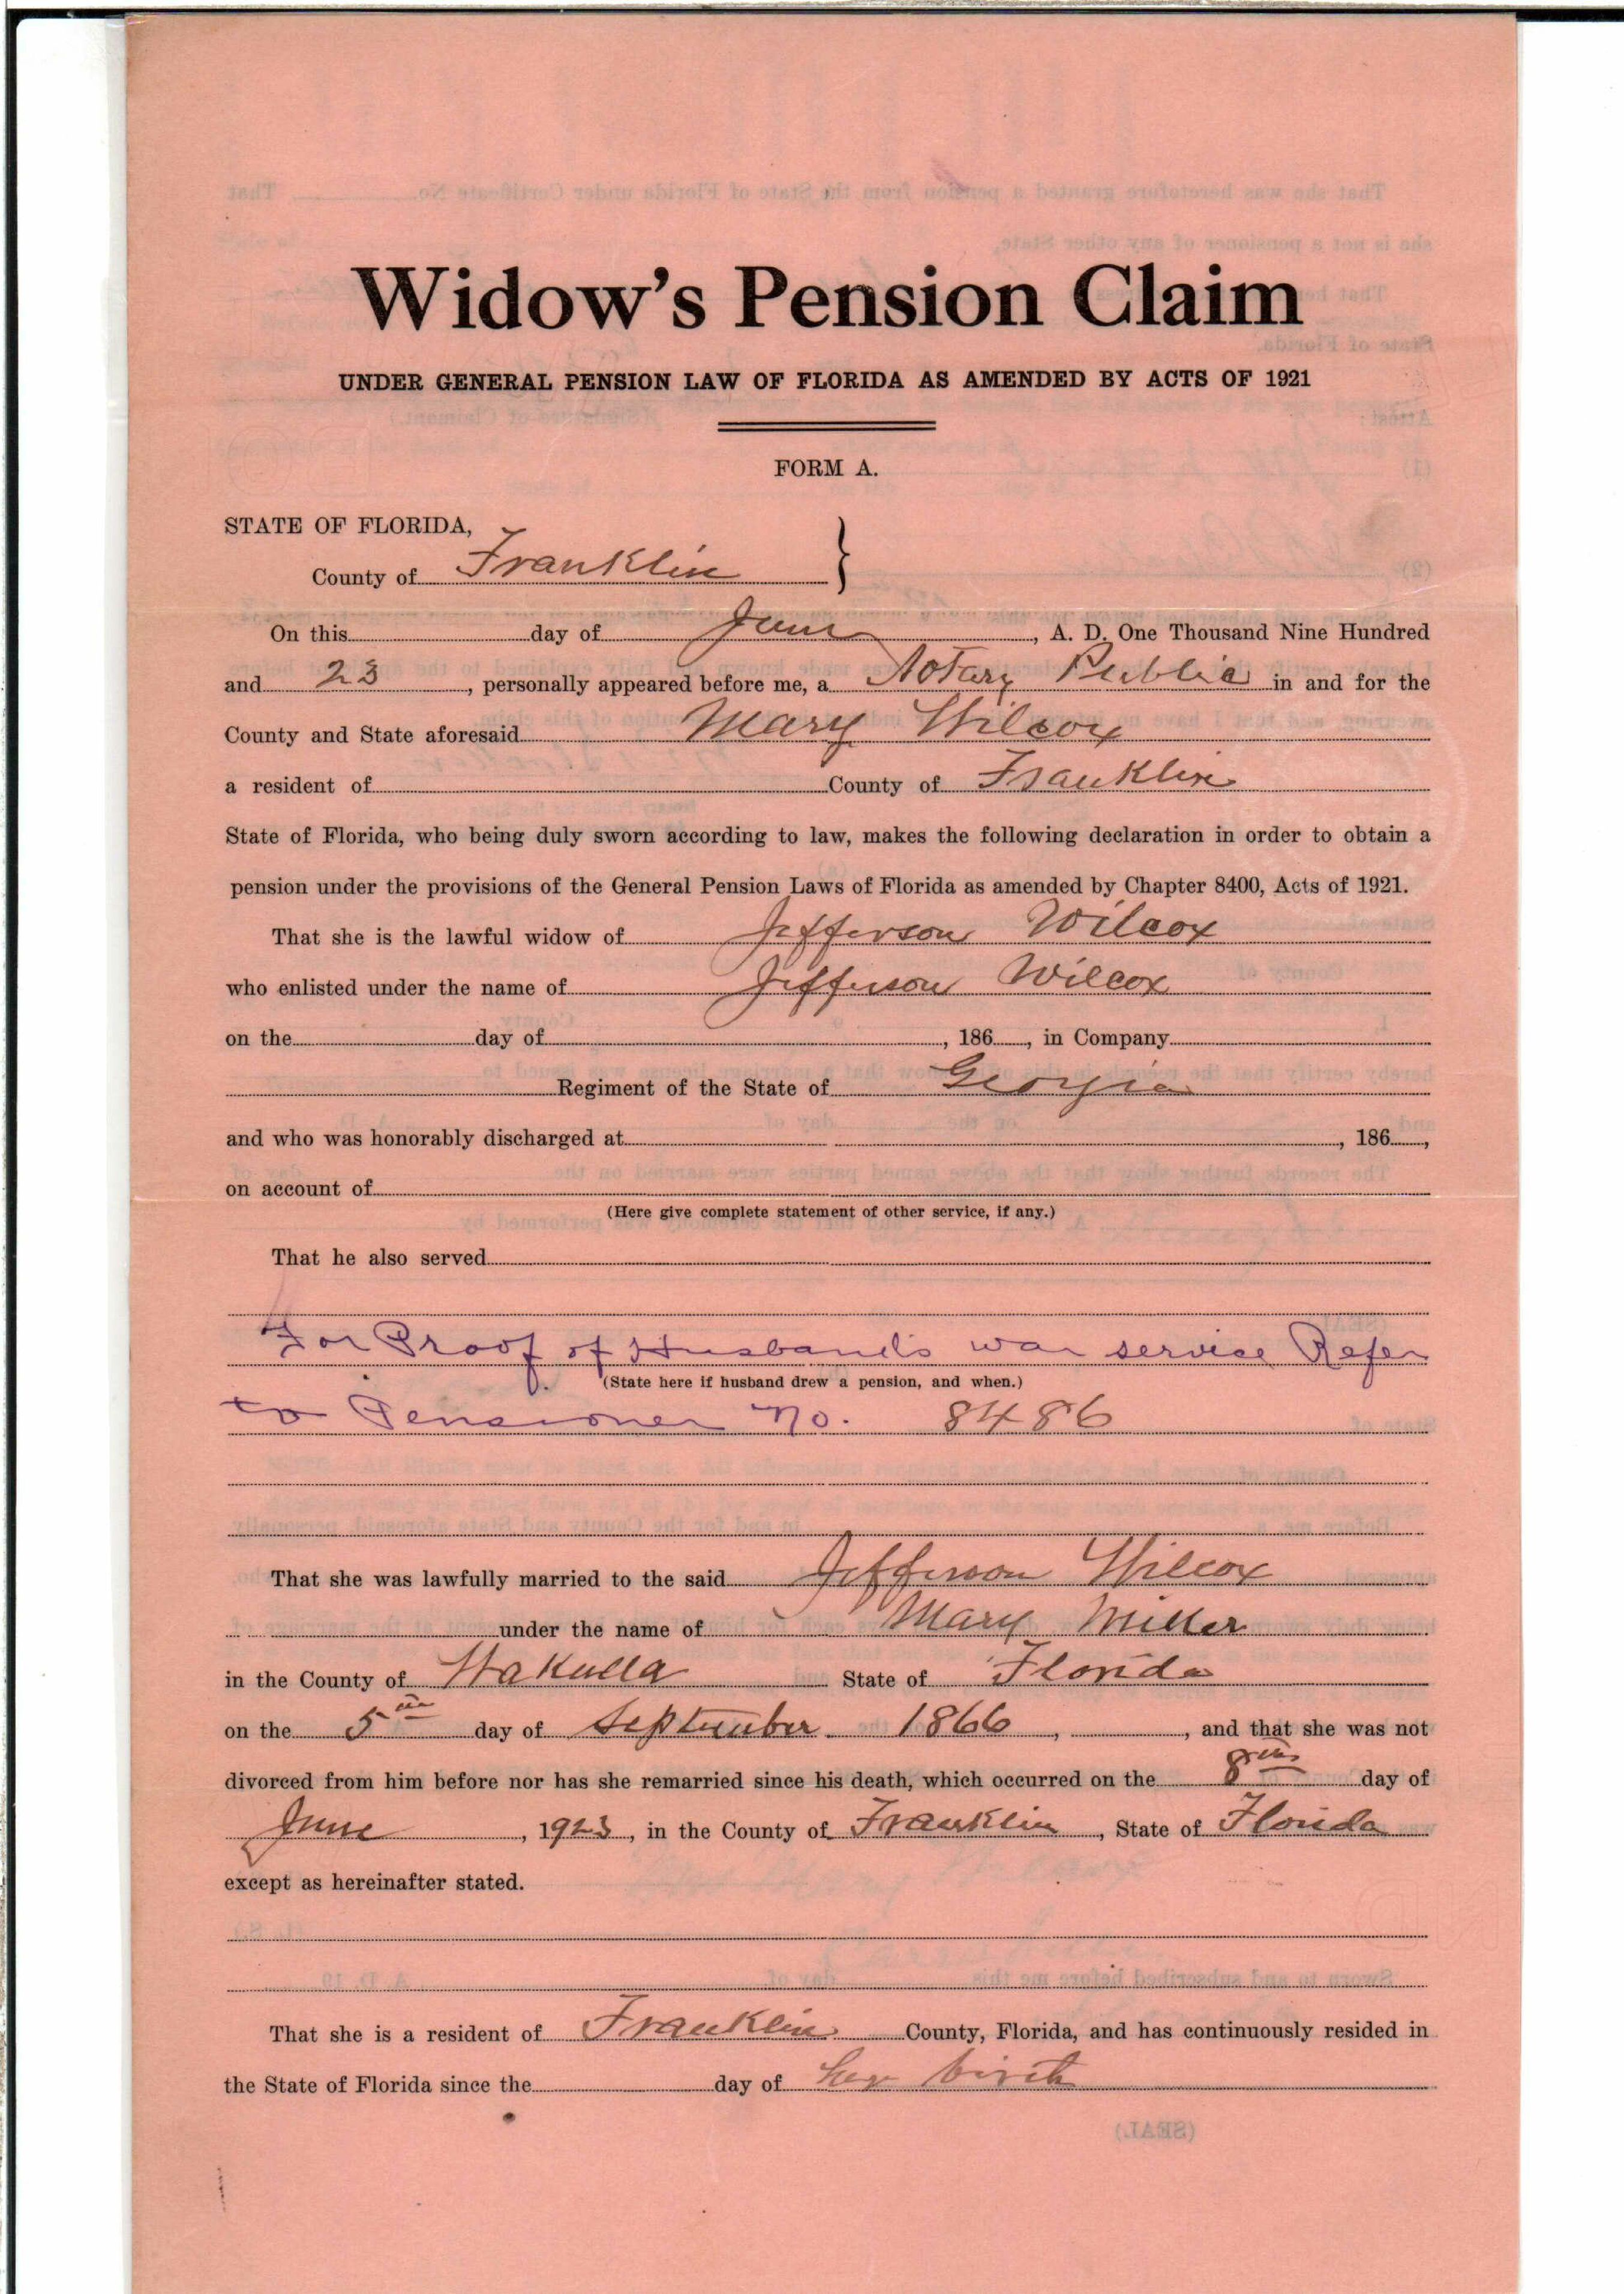 Widow's Pension Claim
UNDER GENERAL PENSION LAW OF FLORIDA AS AMENDED BY ACTS OF 1921
FORM A.
STATE OF FLORIDA,
County of Franklin }
On this day of June, A. D. One Thousand Nine Hundred
and 23, personally appeared before me, a Notary Public in and for the
County and State aforesaid Mary Wilcox
a resident of County of Franklin
State of Florida, who being duly sworn according to law, makes the following declaration in order to obtain a
pension under the provisions of the General Pension Laws of Florida as amended by Chapter 8400, Acts of 1921.
That she is the lawful widow of Jefferson Wilcox
who enlisted under the name of Jefferson Wilcox
on the day of , 186 , in Company
Regiment of the State of Georgia
and who was honorably discharged at , 186 ,
on account of
(Here give complete statement of other service, if any.)
That he also served
For Proof of Husband's war service Refer
(State here if husband drew a pension, and when.)
to Pensioner No. 8486
That she was lawfully married to the said Jefferson Wilcox
under the name of Mary Miller
in the County of Wakulla State of Florida
on the 5th day of September 1866, , and that she was not
divorced from him before nor has she remarried since his death, which occurred on the 8th day of
June, 1923, in the County of Franklin, State of Florida
except as hereinafter stated.
That she is a resident of Franklin County, Florida, and has continuously resided in
the State of Florida since the day of her birth